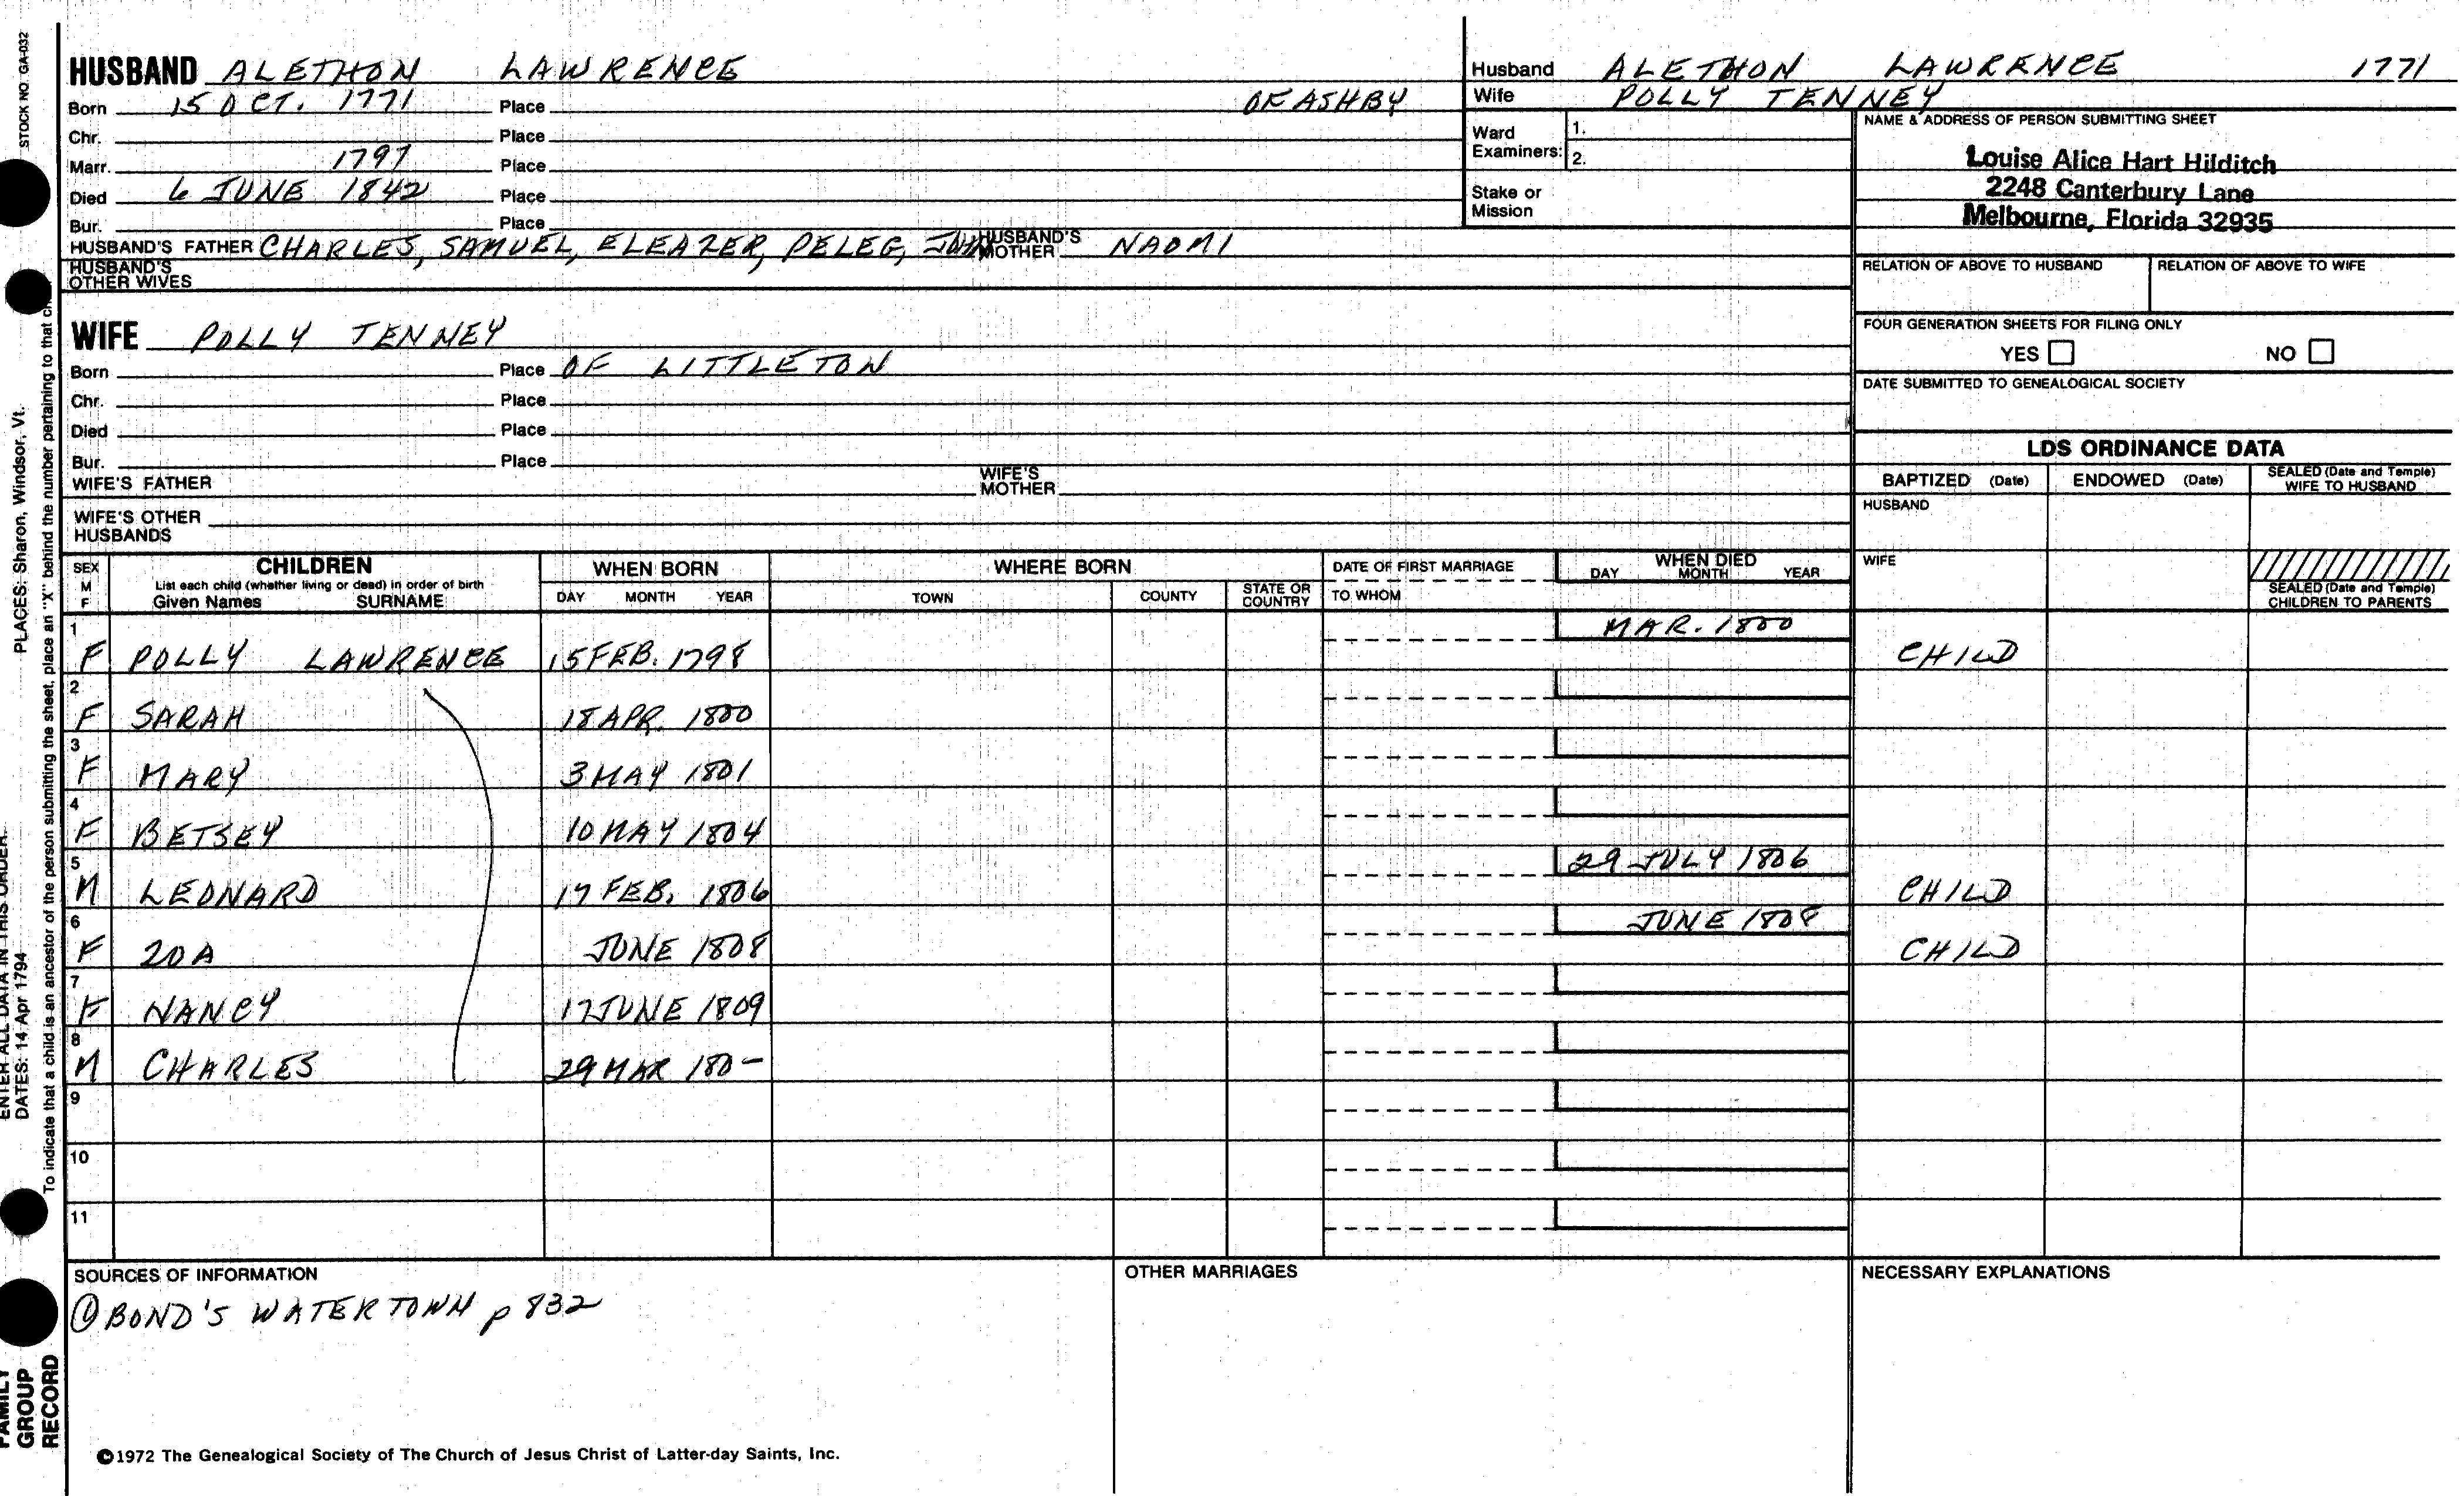 STOCK NO. GA-032
HUSBAND ALETHON LAWRENCE
Born 15 OCT. 1771 Place OF ASHBY
Chr. Place
Marr. 1797 Place
Died 6 JUNE 1842 Place
Bur. Place
HUSBAND'S FATHER CHARLES, SAMUEL, ELEAZER, PELEG, JOHN HUSBAND'S MOTHER NAOMI
HUSBAND'S OTHER WIVES
WIFE POLLY TENNEY
Born Place OF LITTLETON
Chr. Place
Died Place
Bur. Place
WIFE'S FATHER WIFE'S MOTHER
WIFE'S OTHER HUSBANDS
Husband ALETHON LAWRENCE 1771
Wife POLLY TENNEY
Ward Examiners: 1.
2.
Stake or Mission
NAME & ADDRESS OF PERSON SUBMITTING SHEET
Louise Alice Hart Hilditch
2248 Canterbury Lane
Melbourne, Florida 32935
RELATION OF ABOVE TO HUSBAND RELATION OF ABOVE TO WIFE
FOUR GENERATION SHEETS FOR FILING ONLY
YES NO
DATE SUBMITTED TO GENEALOGICAL SOCIETY
LDS ORDINANCE DATA
BAPTIZED (Date) ENDOWED (Date) SEALED (Date and Temple) WIFE TO HUSBAND
HUSBAND
WIFE
SEALED (Date and Temple) CHILDREN TO PARENTS
SEX M F CHILDREN WHEN BORN WHERE BORN DATE OF FIRST MARRIAGE WHEN DIED
List each child (whether living or dead) in order of birth
Given Names SURNAME DAY MONTH YEAR TOWN COUNTY STATE OR COUNTRY TO WHOM DAY MONTH YEAR
1 F POLLY LAWRENCE 15 FEB. 1798 MAR. 1800 CHILD
2 F SARAH 18 APR. 1800
3 F MARY 3 MAY 1801
4 F BETSEY 10 MAY 1804
5 M LEONARD 17 FEB. 1806 29 JULY 1806 CHILD
6 F ZOA JUNE 1808 JUNE 1808 CHILD
7 F NANCY 17 JUNE 1809
8 M CHARLES 29 MAR 180-
9
10
11
SOURCES OF INFORMATION
① BOND'S WATERTOWN p 832
OTHER MARRIAGES
NECESSARY EXPLANATIONS
©1972 The Genealogical Society of The Church of Jesus Christ of Latter-day Saints, Inc.
FAMILY GROUP RECORD
ENTER ALL DATA IN THIS ORDER:
DATES: 14 Apr 1794 PLACES: Sharon, Windsor, Vt.
To indicate that a child is an ancestor of the person submitting the sheet, place an "X" behind the number pertaining to that